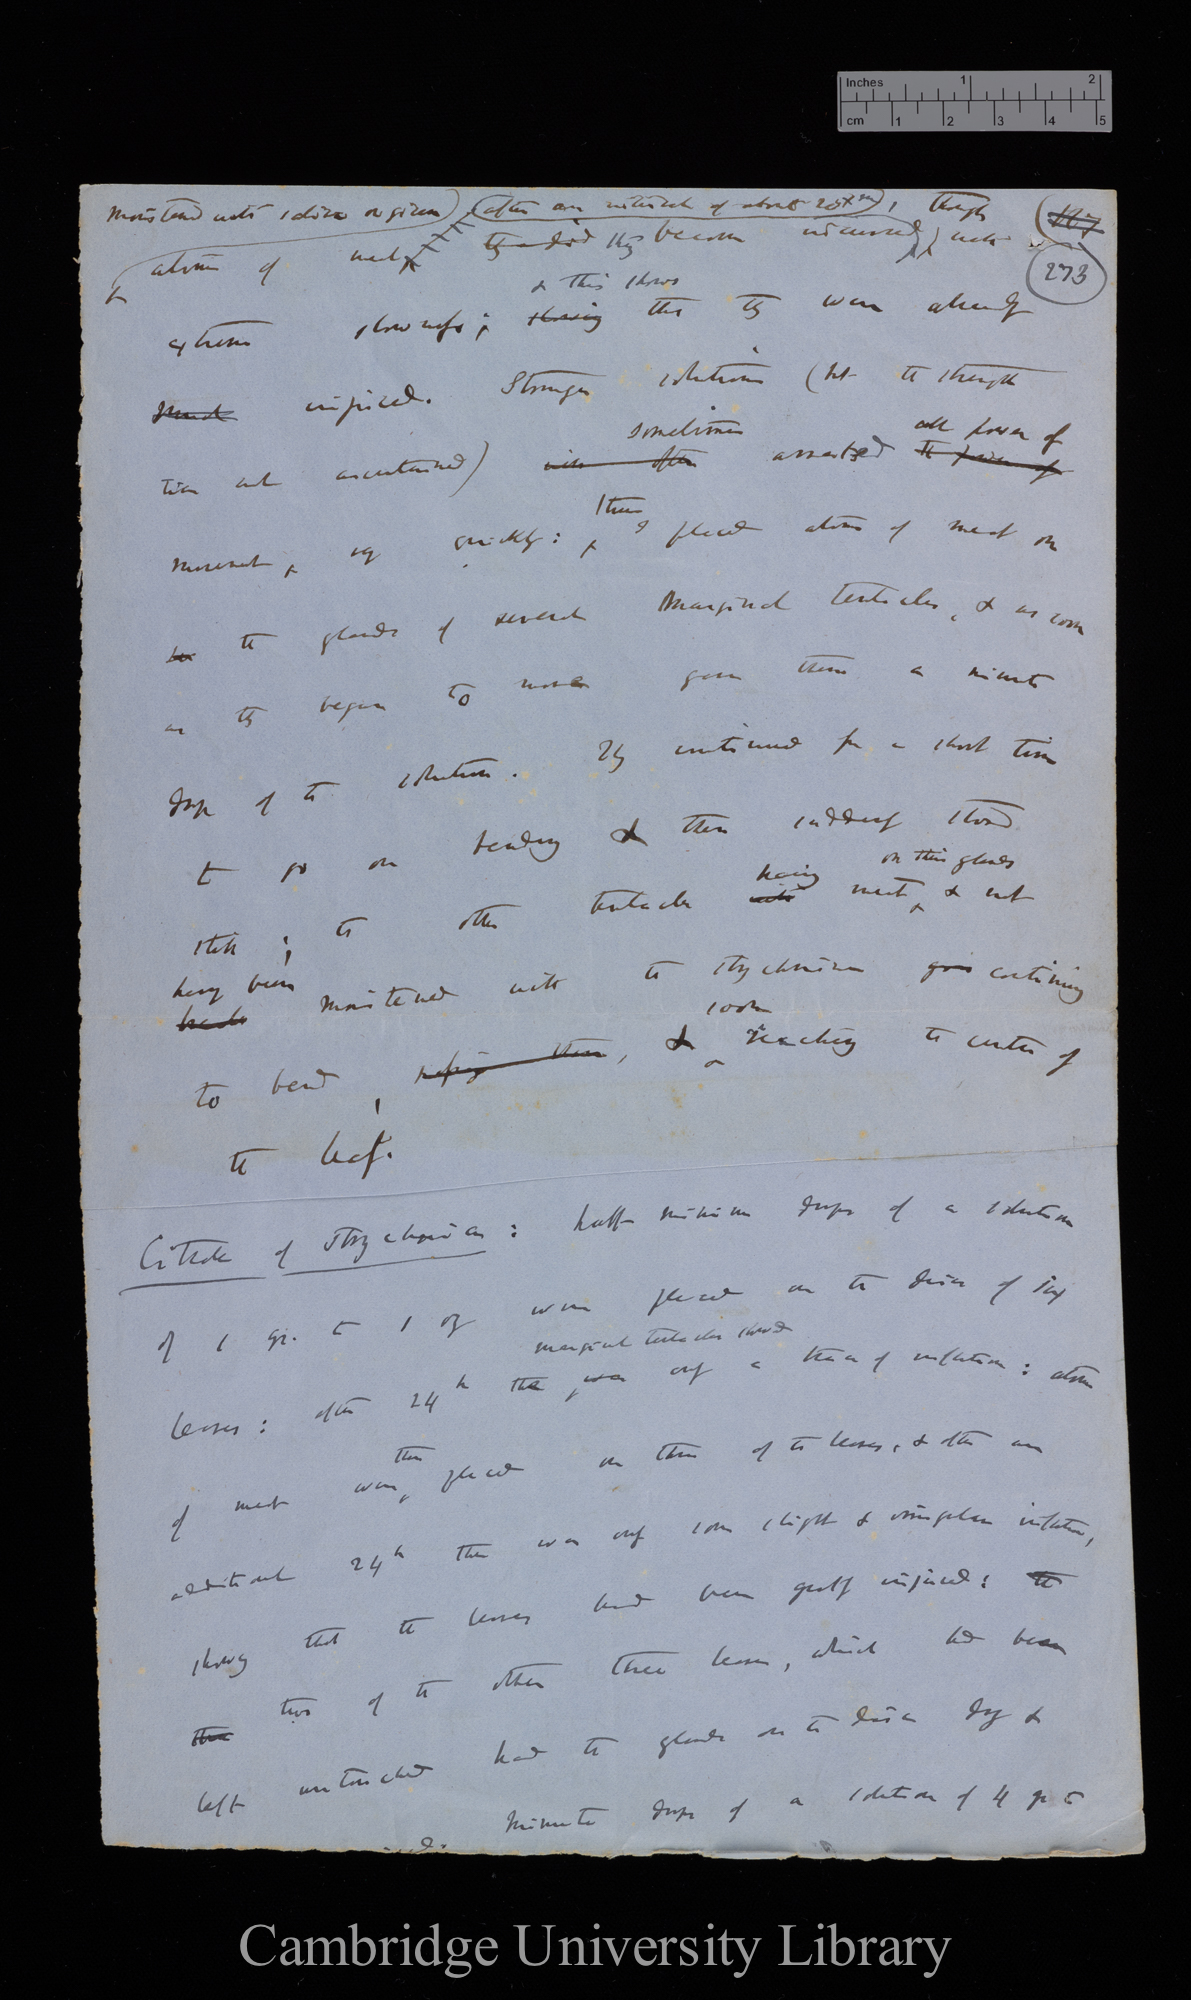 Inches 1 2
cm 1 2 3 4 5
moistened with (after an interval of about , though
273
atoms of meat they did thus become incurved, with
& this shows
extreme slowness; showing that they were already
much injured. Stronger solutions (but the strength
sometimes all power of
was not ascertained) arrested the power of
thus
movement, very quickly: I placed atoms of meat on
the glands of several marginal tentacles, & as soon
as they began to move gave them a minute
drop of the solution. They continued for a short time
to go on bending & then suddenly stood
having on their glands
still; the other tentacles with meat, & not
having been moistened with the strychnine continuing
soon
to bend, & reaching the centre of
the leaf.
Citrate of Strychnine: half-minim drops of a solution
of 1 gr. to 1 oz were placed on the discs of six
marginal tentacles showed
leaves: after 24 h only a trace of inflection: atoms
then
of meat were placed on three of the leaves, & after an
additional 24 h there was only some slight & irregular inflection,
showing that the leaves had been greatly injured: the
two of the other three leaves, which had been
left untouched had the glands on the disc dry &
minute drops of a solution of 4 gr to
Cambridge University Library